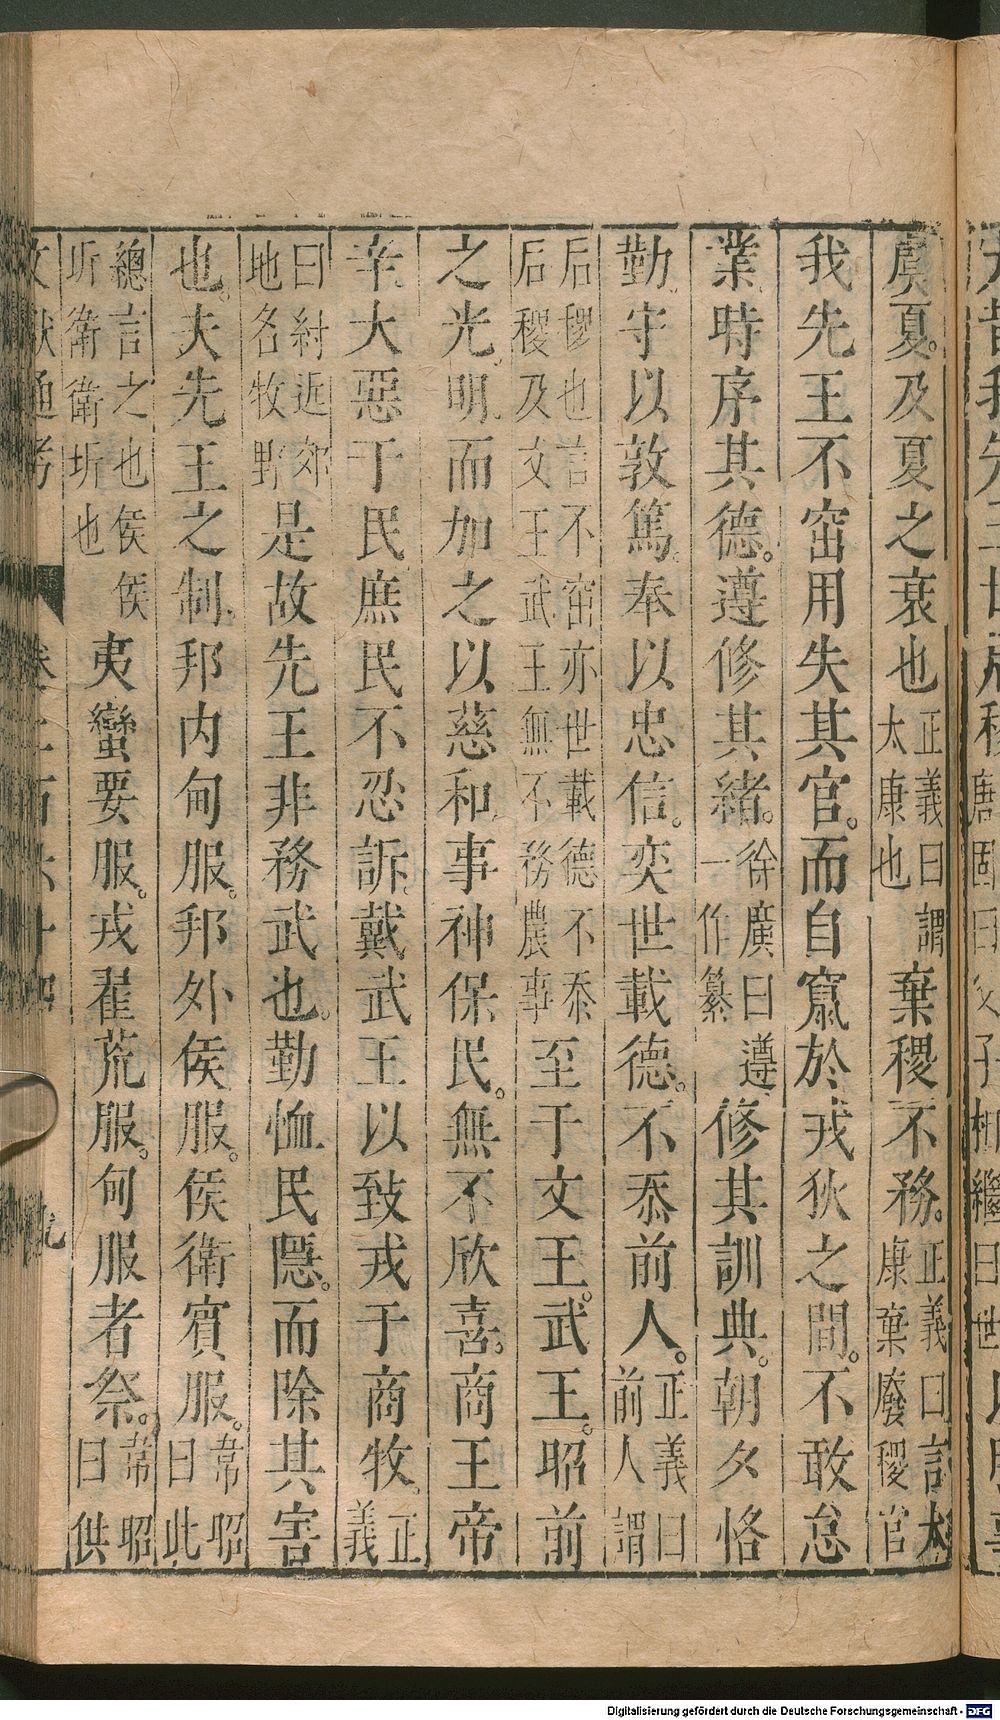 虞夏。及夏之衰也正義曰謂太康也棄稷不務。正義曰言太康棄廢稷官
我先王不窋用失其官。而自竄於戎狄之間。不敢怠
業。時序其德。遵修其緒。徐廣曰遵一作纂修其訓典。朝夕恪
勤。守以敦篤。奉以忠信。奕世載德。不忝前人。正義曰前人謂
后稷也言不窋亦世載德不忝后稷及文王武王無不務農事至于文王。武王。昭前
之光。明。而加之以慈和。事神保民。無不欣喜。商王帝
辛。大惡于民。庶民不忍。訴。戴武王以致戎于商牧。正義
曰紂近郊地名牧野是故先王非務武也。勤恤民隱。而除其害
也。夫先王之制。邦内甸服。邦外侯服。侯衛賓服。韋昭曰此
總言之也侯侯圻衛衛圻也夷蠻要服。戎翟荒服。甸服者祭。韋昭曰供
文獻通考
九
Digitalisierung gefördert durch die Deutsche Forschungsgemeinschaft - DFG